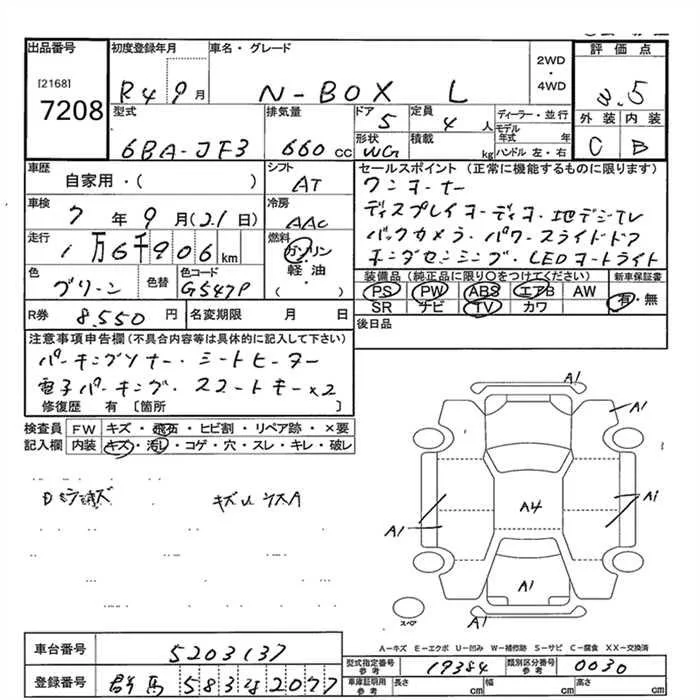 出品番号
[2168]
7208
初度登録年月
R4 9月
車名・グレード
N-BOX L
2WD
・
4WD
評価点
3.5
外装 内装
C B
型式
6BA-JF3
排気量
660 cc
ドア
5
形状
WG
定員
4 人
積載
kg
ディーラー・並行
モデル年式 年
ハンドル 左・右
車歴
自家用・( )
車検
7年9月(21日)
走行
1万6千906km
色
グリーン
色替
色コード
G547P
シフト
AT
冷房
AAC
燃料
ガソリン
軽油・
( )
セールスポイント(正常に機能するものに限ります)
ワンオーナー
ディスプレイオーディオ・地デジTV
バックカメラ・パワースライドドア
ホンダセンシング・LEDオートライト
装備品(純正品に限り○をつけてください)
PS PW ABS エアB AW
SR ナビ TV カワ
新車保証書
有・無
後日品
R券
8,550円
名変期限 月 日
注意事項申告欄(不具合内容等は具体的に記入して下さい)
パーキングソナー・シートヒーター
電子パーキング・スマートキー×2
修復歴 有〔箇所 〕
検査員記入欄
FW キズ・飛石・ヒビ割・リペア跡・×要
内装 キズ・汚レ・コゲ・穴・スレ・キレ・破レ
A1
A1
A4
A1
A1
A1
A1
スペア
A-キズ E-エクボ U-凹み W-補修跡 S-サビ C-腐食 XX-交換済
車台番号
5203137
登録番号
群馬 583 2077
型式指定番号
参考
19384
類別区分番号
参考
0030
車庫証明用
参考
長さ cm
幅 cm
高さ cm